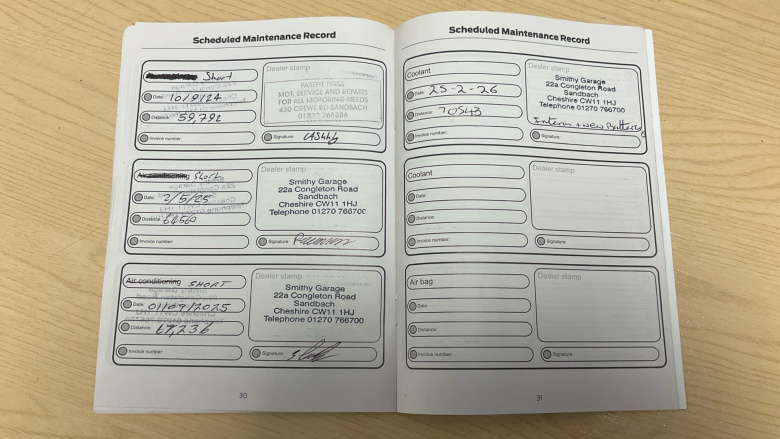 Scheduled Maintenance Record
Short
Date: 10/9/24
Distance: 59,792
Invoice number:
Dealer stamp
MOT, SERVICE AND REPAIRS
FOR ALL MOTORING NEEDS
450 CREWE RD SANDBACH
Signature:
Air conditioning Short
Date: 2/5/25
Distance:
Invoice number:
Dealer stamp
Smithy Garage
22a Congleton Road
Sandbach
Cheshire CW11 1HJ
Telephone 01270 766700
Signature:
Air conditioning SHORT
Date: 01/09/2025
Distance: 67,236
Invoice number:
Dealer stamp
Smithy Garage
22a Congleton Road
Sandbach
Cheshire CW11 1HJ
Telephone 01270 766700
Signature:
30
Scheduled Maintenance Record
Coolant
Date: 25-2-26
Distance: 70543
Invoice number:
Dealer stamp
Smithy Garage
22a Congleton Road
Sandbach
Cheshire CW11 1HJ
Telephone 01270 766700
Interim + New Battery
Signature:
Coolant
Date:
Distance:
Invoice number:
Dealer stamp
Signature:
Air bag
Date:
Distance:
Invoice number:
Dealer stamp
Signature:
31